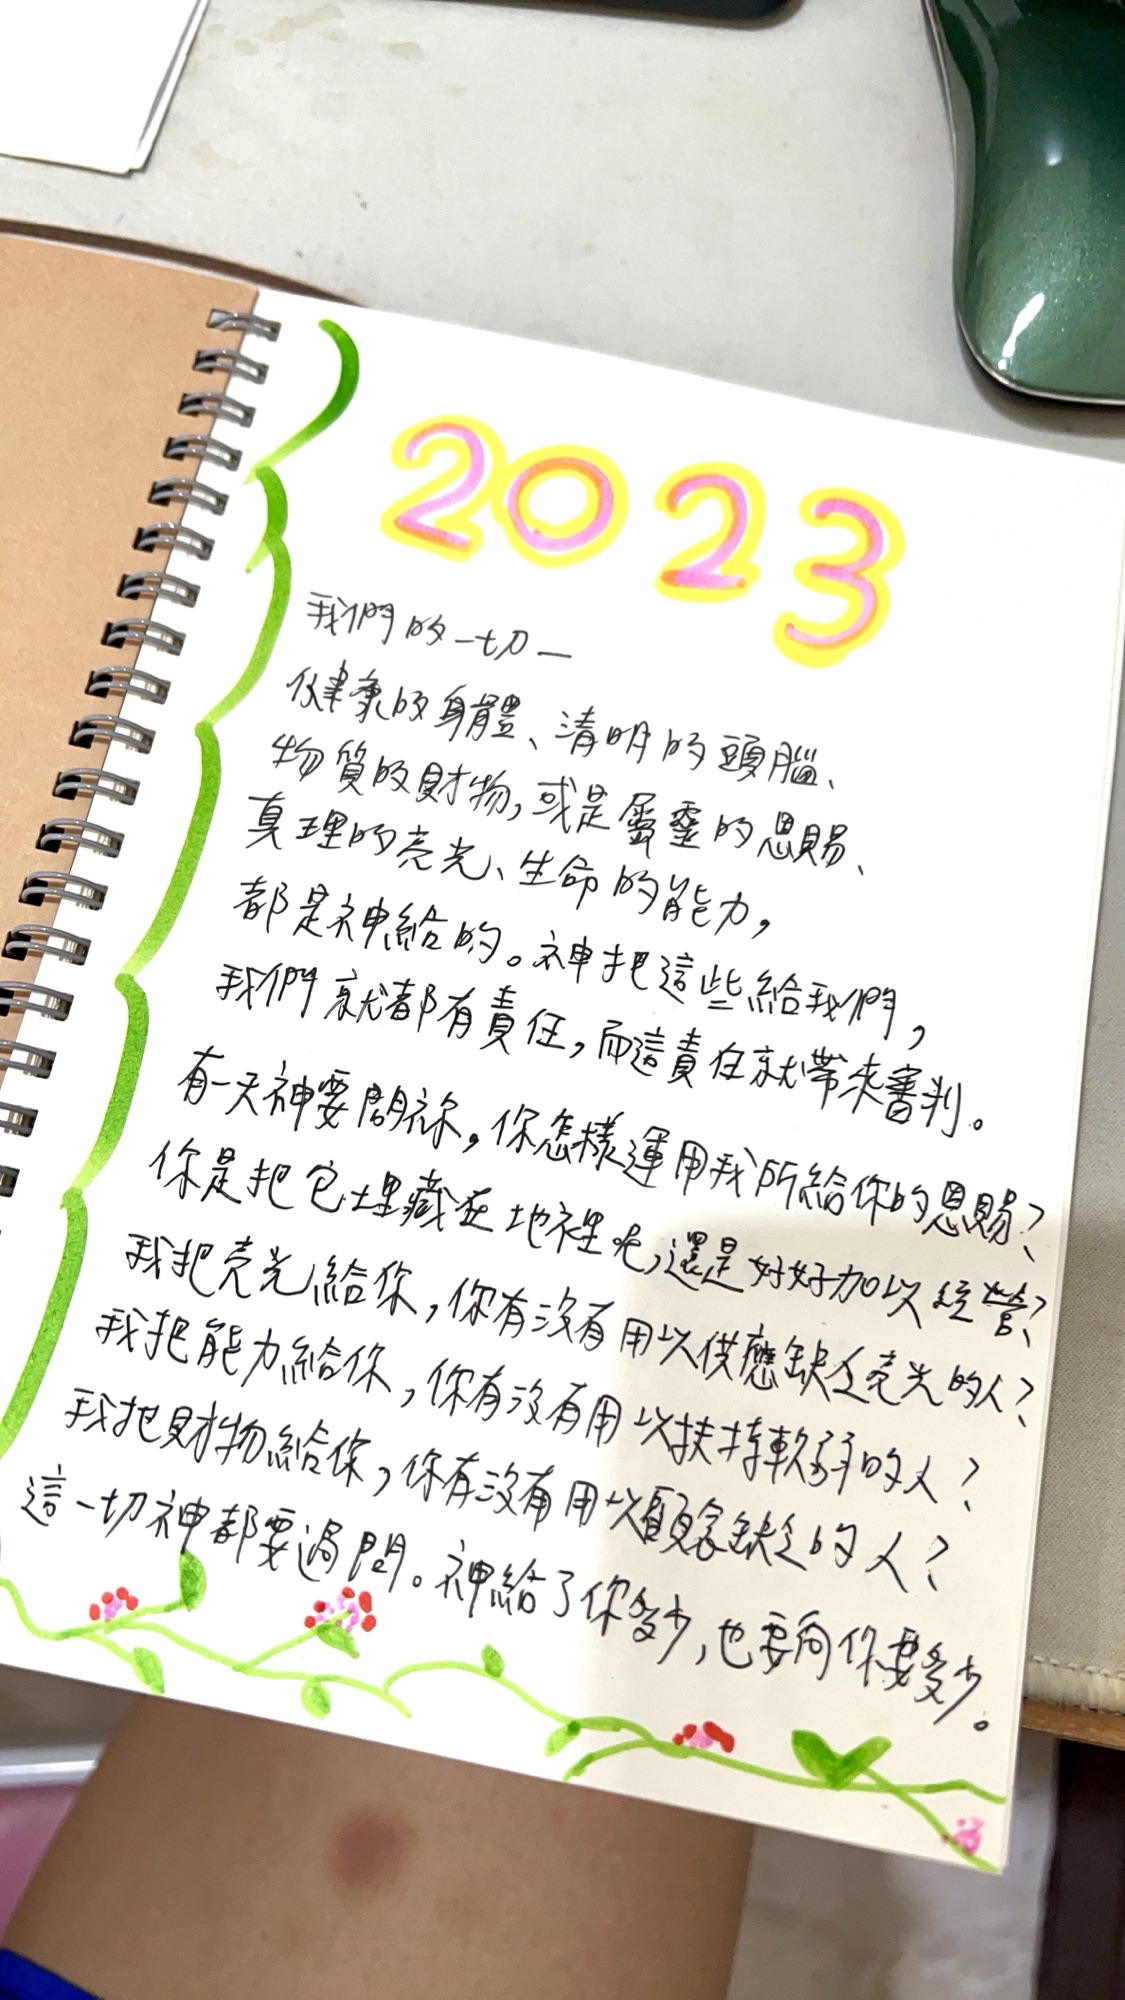 2023
我們的一切—
健康的身體、清明的頭腦、
物質的財物,或是屬靈的恩賜、
真理的亮光、生命的能力,
都是神給的。神把這些給我們,
我們就都有責任,而這責任就帶來審判。
有一天神要問你,你怎樣運用我所給你的恩賜?
你是把它埋藏在地裡呢,還是好好加以經營?
我把亮光給你,你有沒有用以供應缺乏亮光的人?
我把能力給你,你有沒有用以扶持軟弱的人?
我把財物給你,你有沒有用以顧念缺乏的人?
這一切神都要過問。神給了你多少,也要向你要多少。